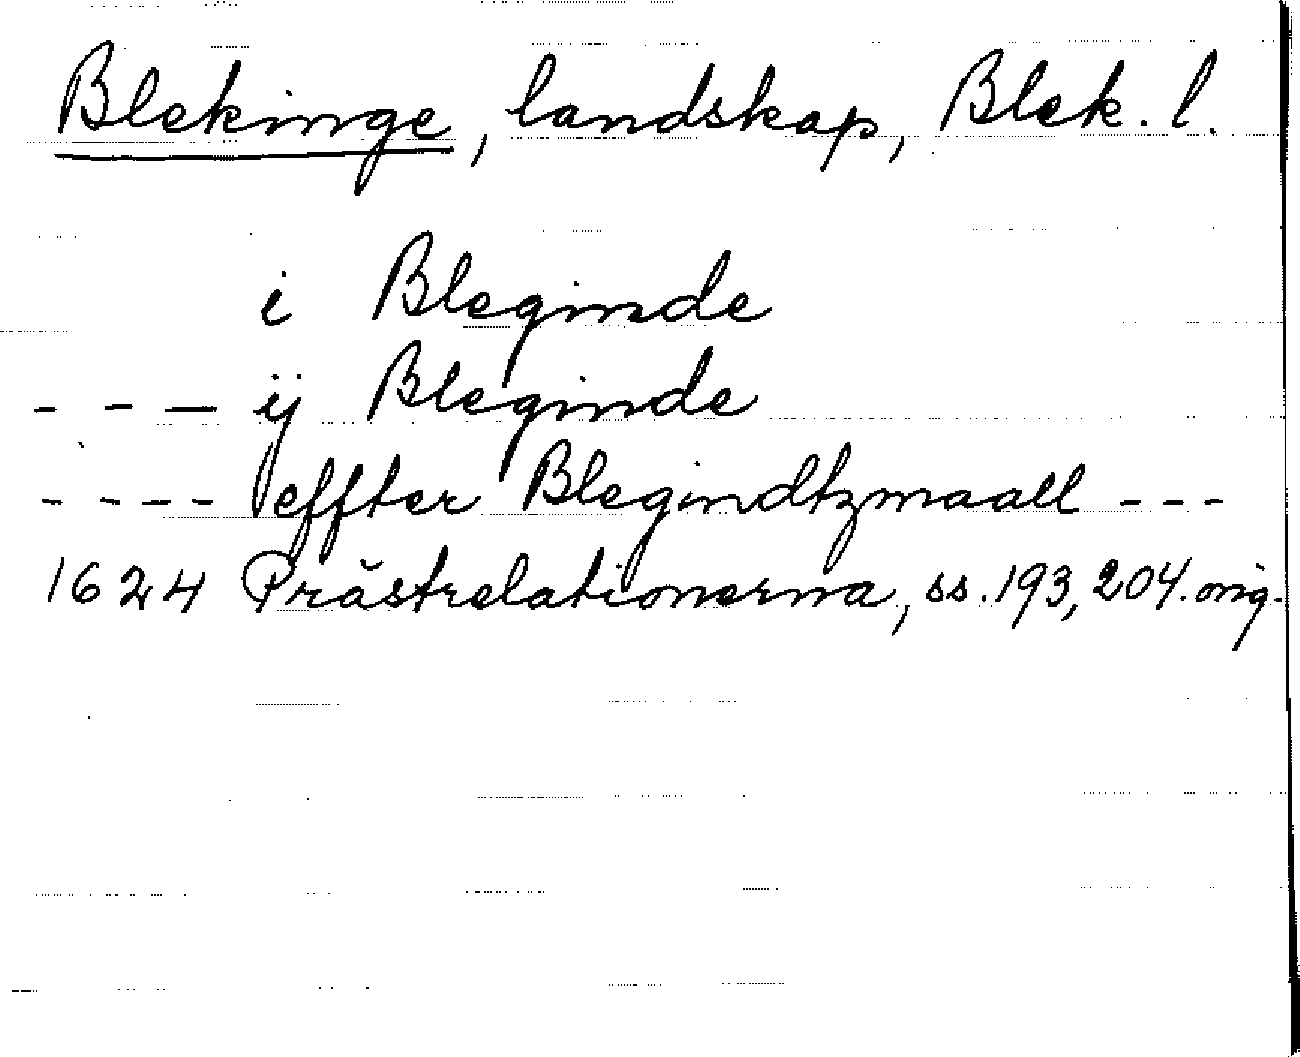 Blekinge, landskap, Blek. l.
i Bleginde
- - — ij Bleginde
- - - - effter Blegindtzmaall - - -
1624 Prästrelationerna, ss. 193, 204. orig.